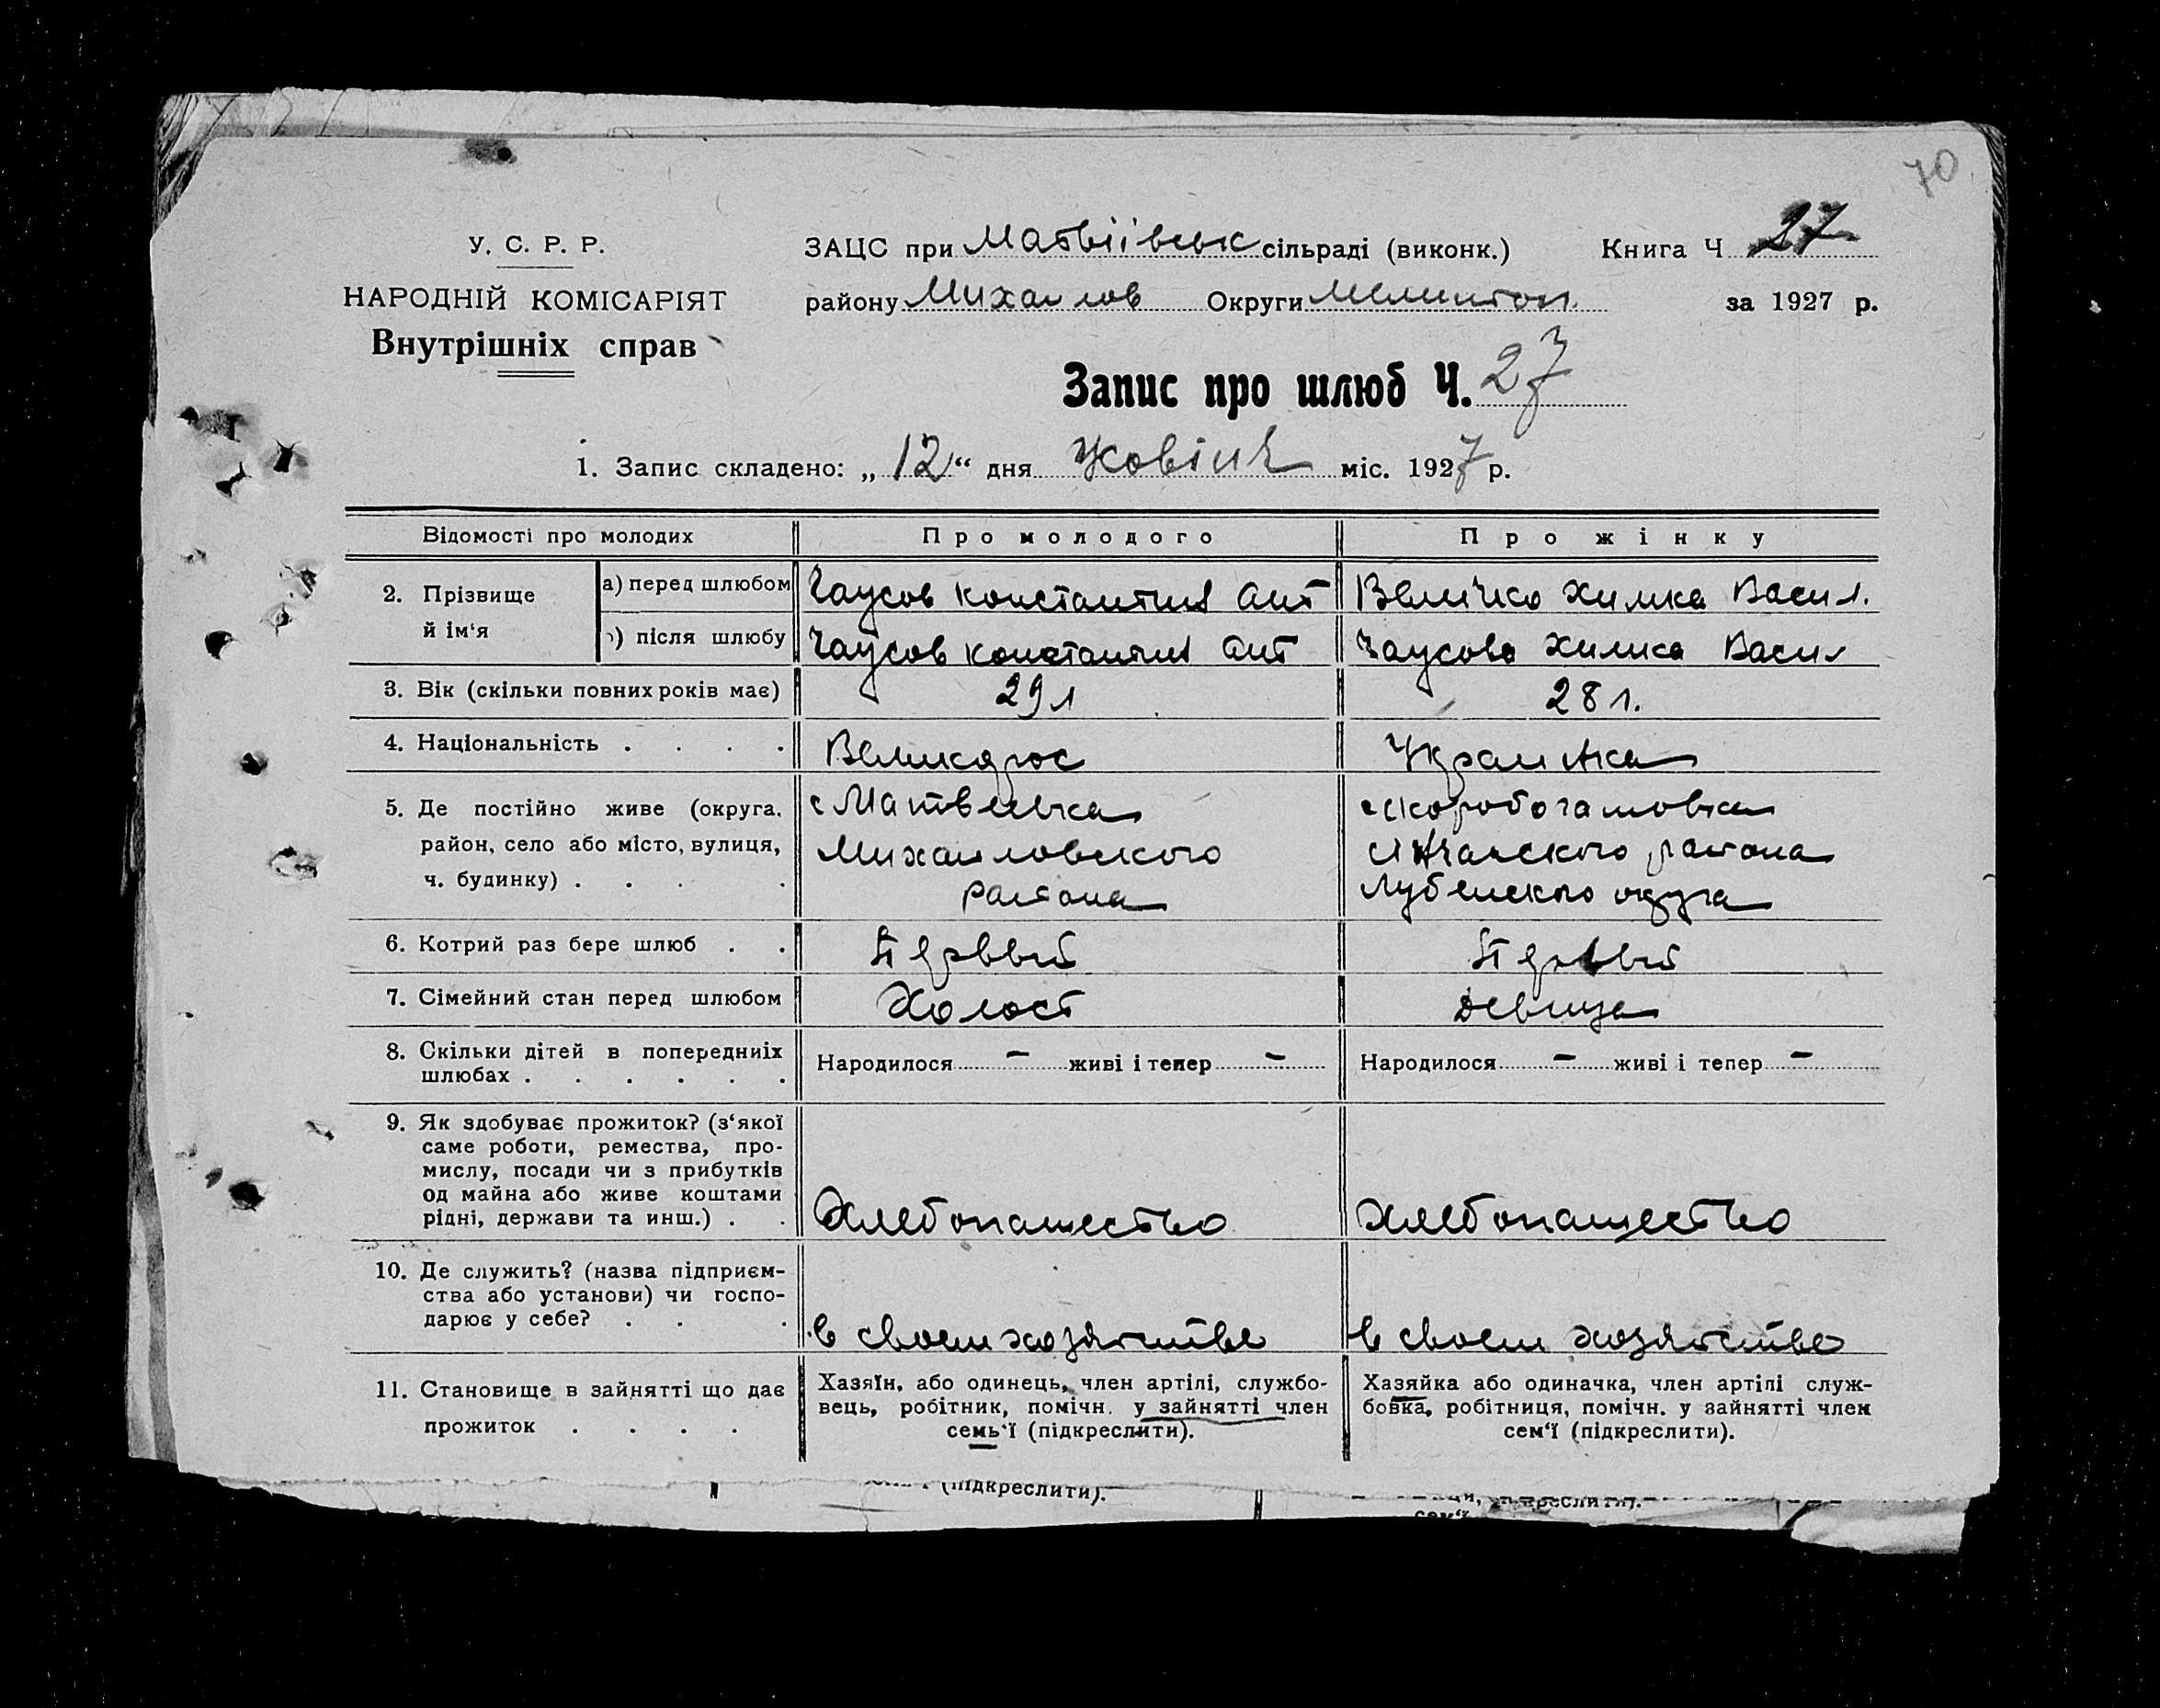 70
У. С. Р. Р.
НАРОДНІЙ КОМІСАРІЯТ
Внутрішніх справ
ЗАЦС при Матвіївськ сільраді (виконк.) Книга Ч 27
району Михайлов Округи Мелитоп. за 1927 р.
Запис про шлюб Ч. 27
1. Запис складено: „12“ дня Жовтня міс. 1927 р.
Відомості про молодих Про молодого Про жінку
2. Прізвище й ім‘я
а) перед шлюбом Чаусов Константин Ант Величко Химка Васил.
б) після шлюбу Чаусов Константин Ант Чаусова Химка Васил
3. Вік (скільки повних років має) 29 л 28 л.
4. Національність . . . . Великорос Украинка
5. Де постійно живе (округа, с Матвеевка с Скоробогатовка
район, село або місто, вулиця, Михайловского района
ч. будинку) . . . . района Лубенского округа
6. Котрий раз бере шлюб . . Первый Первый
7. Сімейний стан перед шлюбом Холост Девица
8. Скільки дітей в попередниіх Народилося – живі і тепер – Народилося – живі і тепер –
шлюбах . . . . . .
9. Як здобуває прожиток? (з‘якої
саме роботи, ремества, про-
мислу, посади чи з прибутків
од майна або живе коштами
рідні, держави та инш.) . . Хлебопашество Хлебопашество
10. Де служить? (назва підприєм-
ства або установи) чи госпо-
дарює у себе? . . . в своем хозяйстве в своем хозяйстве
11. Становище в зайнятті що дає Хазяїн, або одинець, член артілі, службо- Хазяйка або одиначка, член артілі служ-
прожиток . . . . вець, робітник, помічн. у зайнятті член бовка, робітниця, помічн. у зайнятті член
семь‘ї (підкреслити). сем‘ї (підкреслити).
(підкреслити).
сем‘ї